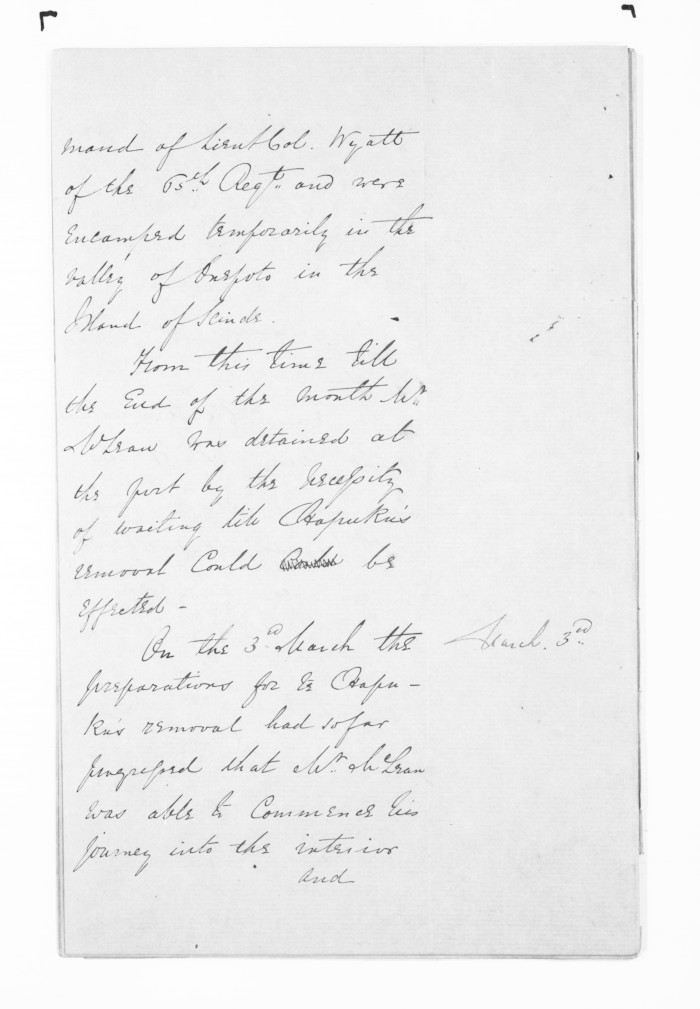 mand of Lieut Col. Wyatt
of the 65th Regt. and were
encamped temporarily in the
valley of Onepoto in the
Island of Scinde.
From this time till
the End of the month Mr.
McLean was detained at
the port by the necessity
of waiting till Hapuku's
removal Could be
effected -
On the 3rd March the
March. 3rd
preparations for Te Hapu-
ku's removal had so far
progressed that Mr. McLean
was able to Commence his
journey into the interior
and